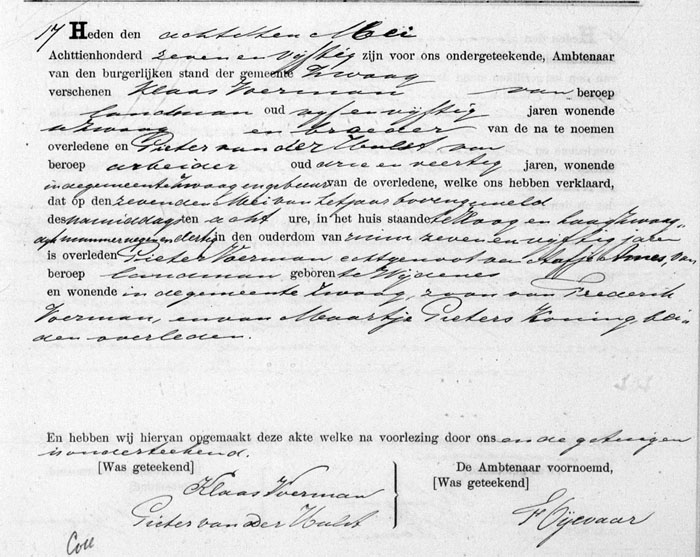 17 Heden den achtsten Mei
Achttienhonderd zeven en vijftig zijn voor ons ondergeteekende, Ambtenaar
van den burgerlijken stand der gemeente Zwaag
verschenen Klaas Voerman van beroep
landman oud vijf en vijftig jaren wonende
te Zwaag en broeder van de na te noemen
overledene en Pieter van der Hulst, van
beroep arbeider oud drie en veertig jaren, wonende
in de gemeente Zwaag en gebuur van de overledene, welke ons hebben verklaard,
dat op den zevenden Mei van het jaar bovengemeld
des namiddags ten acht ure, in het huis staande te Zwaag,
nummer negen en dertig in den ouderdom van ruim zeven en vijftig jaren
is overleden Pieter Voerman echtgenoot van Aafje Ames, van
beroep landman geboren te Wijdenes
en wonende in de gemeente Zwaag, zoon van Frederik
Voerman, en van Maartje Pieters Koning, bei-
den overleden.
En hebben wij hiervan opgemaakt deze akte welke na voorlezing door ons en de getuigen
is onderteekend.
[Was geteekend]
Klaas Voerman
Pieter van Der Hulst
De Ambtenaar voornoemd,
[Was geteekend]
Coll